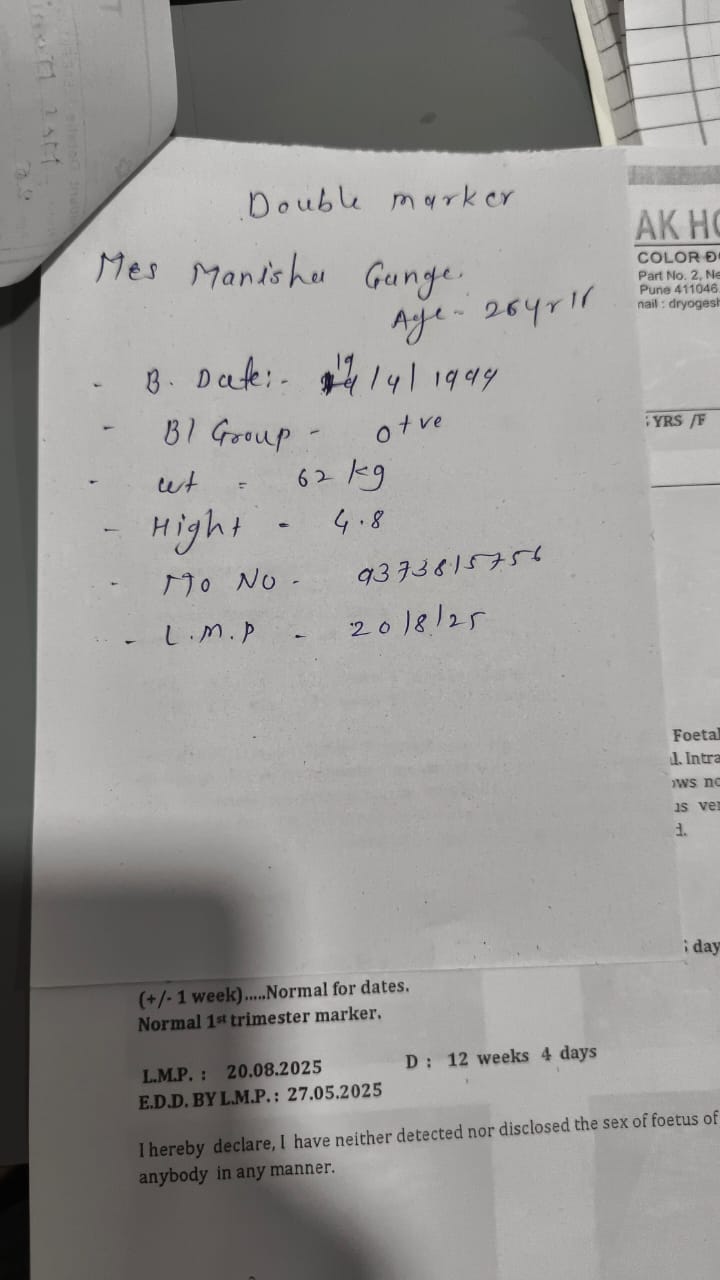 Double marker
Mrs Manisha Gunge.
Age - 26yrs
- B. Date:- 19/4/1999
- Bl Group - O+ve
- wt = 62 kg
- Hight - 4.8
- Mo No - 9373815756
- L.M.P - 20/8/25
AK HO
COLOR DO
Part No. 2, Ne
Pune 411046
nail : dryogesh
YRS /F
Foetal
l. Intra
ows no
us ver
d.
day
(+/- 1 week).....Normal for dates.
Normal 1st trimester marker.
L.M.P. : 20.08.2025 D : 12 weeks 4 days
E.D.D. BY L.M.P. : 27.05.2025
I hereby declare, I have neither detected nor disclosed the sex of foetus of
anybody in any manner.